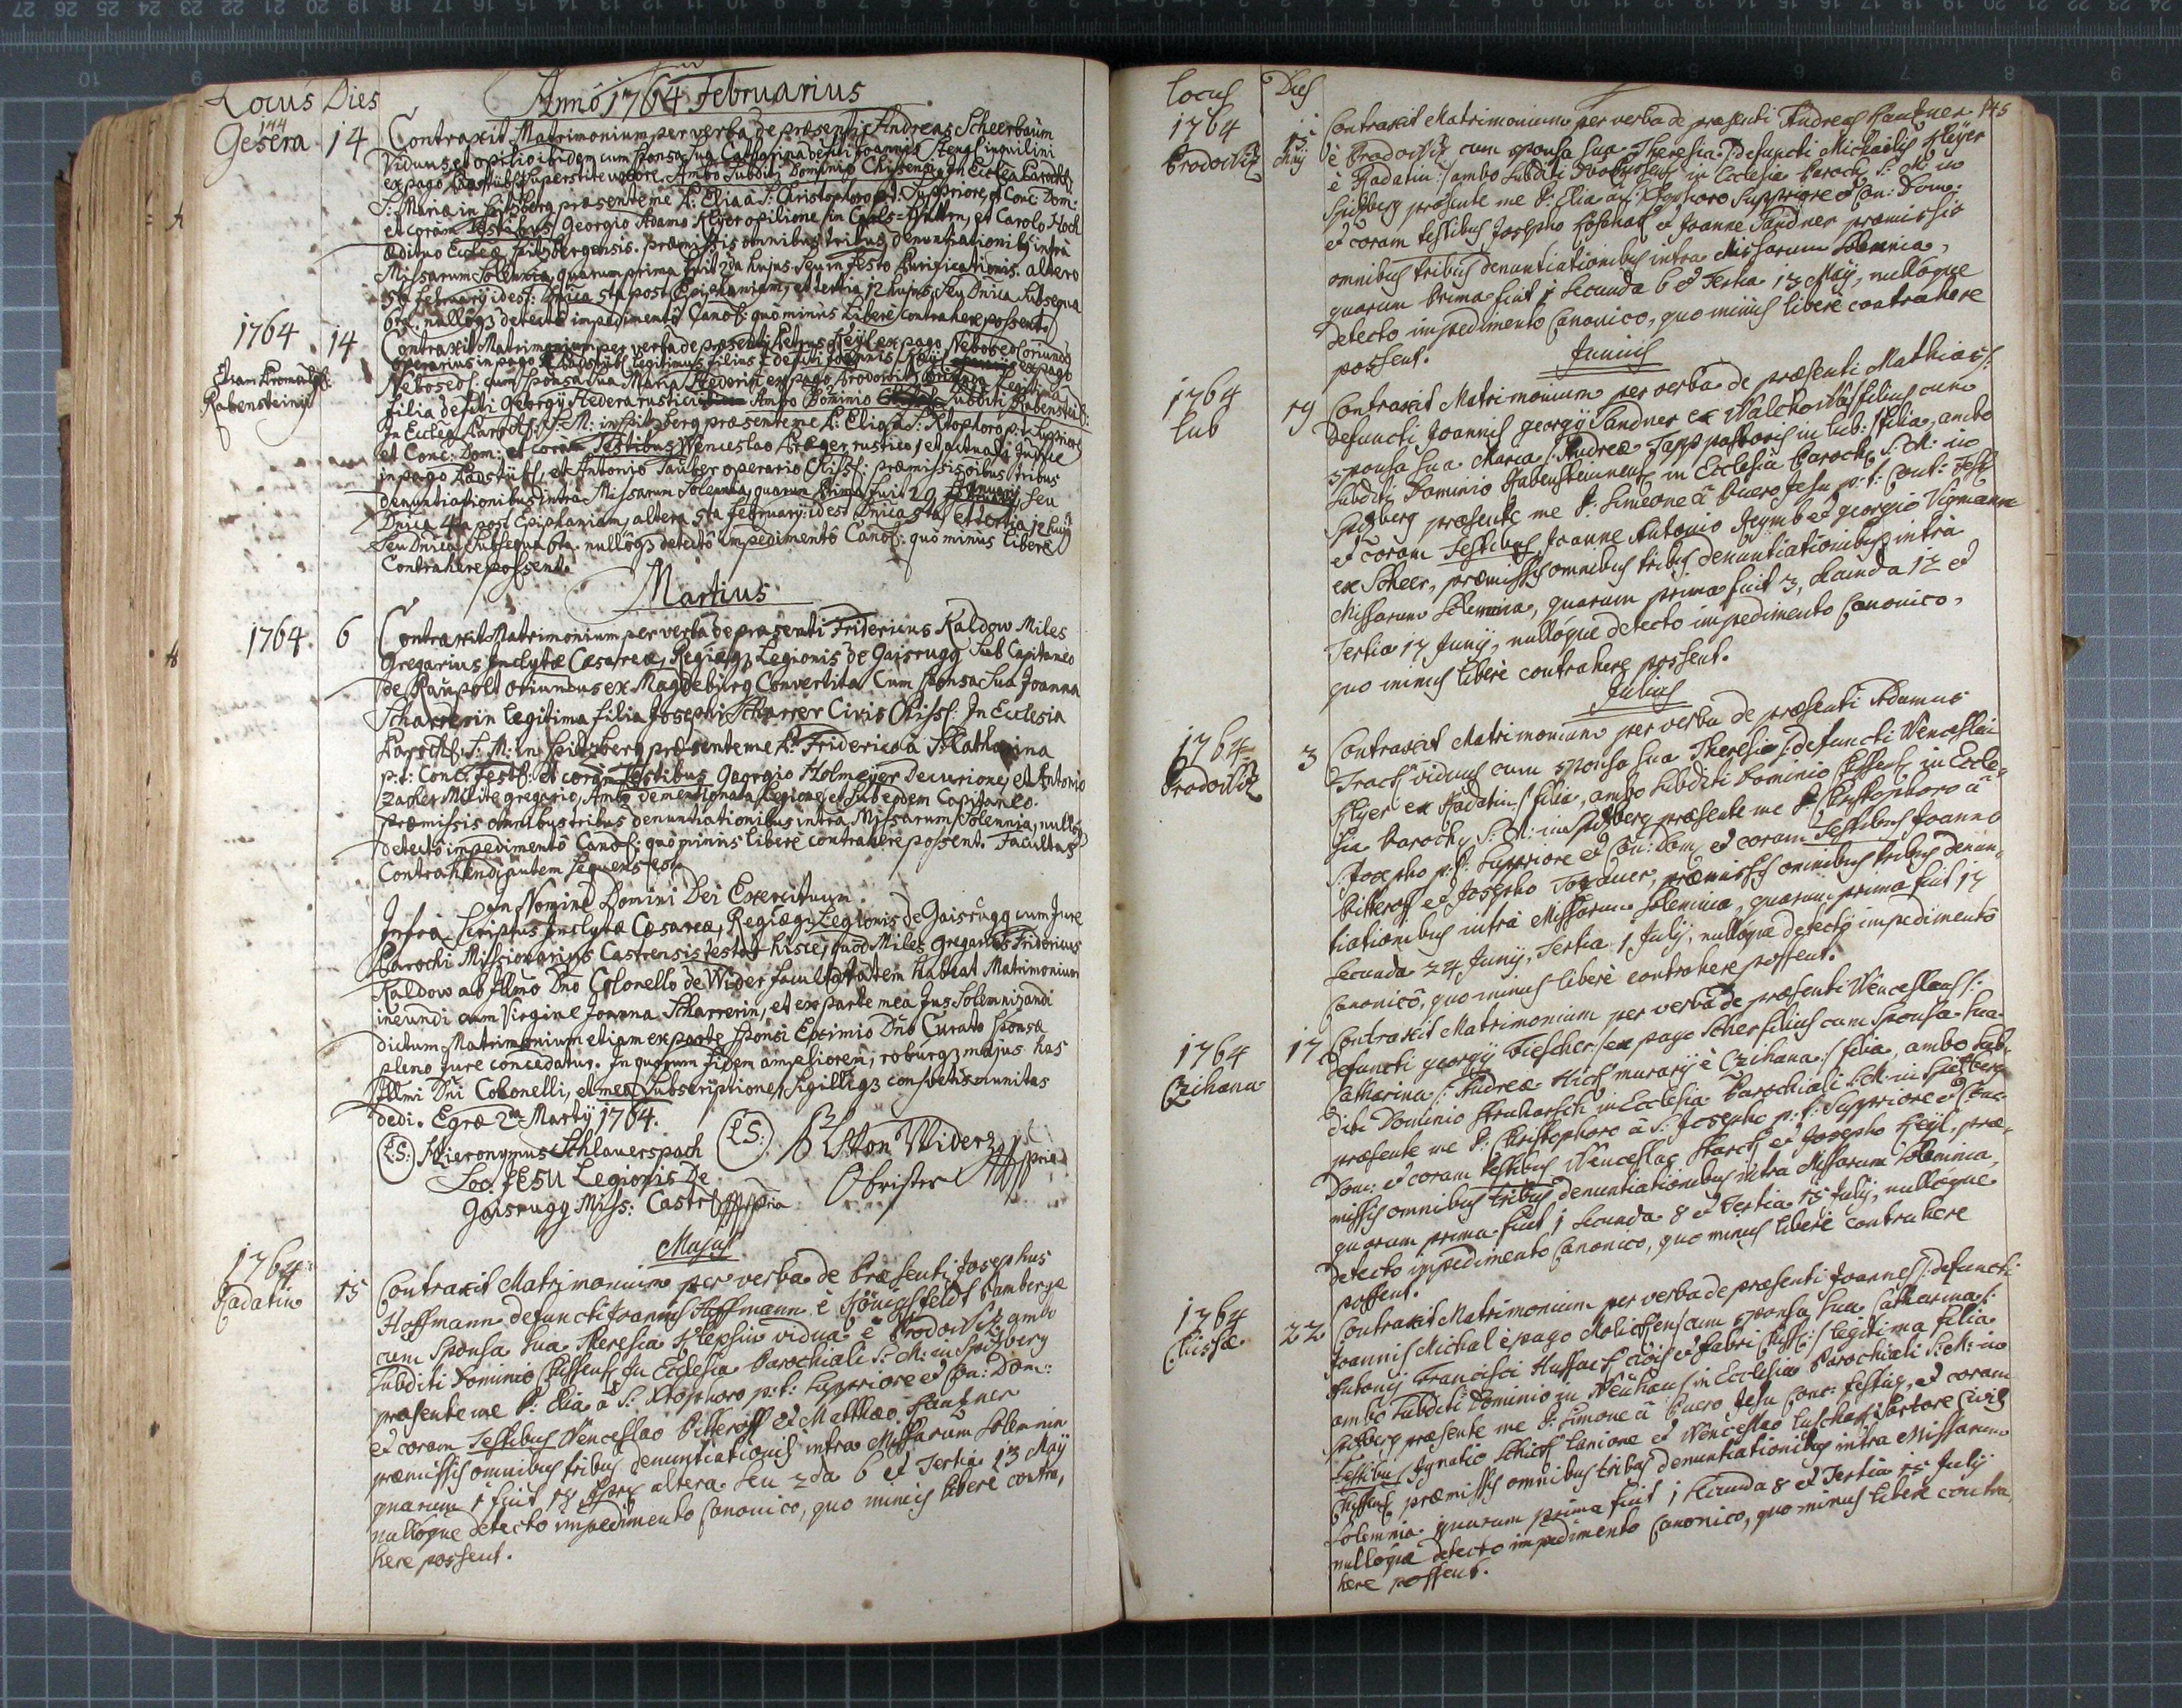 Locus Dies Anno 1764 Februarius
144
Gesera 14 Contraxit Matrimonium per verba de præsenti Andreas Scheerbaum
Viduus et opilio ibidem cum Sponsa Sua Catharina defti Joannis Stengl inquilini
ex pago superstite uxore. Ambo Subditi Dominio Chissensi, In Ecclea Paroch:
S: Mariæ in Spitzberg præsente me P: Elia à S: Christophoro p:t: Suppriore, et Conc: Dom:
et coram Testibus Georgio Adamo Heger opilione in et Carolo Hoch
ædituo Eccleæ Spitzbergensis. præmissis omnibus tribus denuntiationibs intra
Missarum Solemnia, quarum prima fuit 2da hujus Seu in festo Purificationis. altera
5ta February idest: Dnica 5ta post Epiphaniam, et tertia 12 hujus, Seu Dnica Subsequa
6ta. nullóq3 detectô impedimentô Canof: quó minùs Liberè contrahere possent.
1764 14 Contraxit Matrimonium per verba de præsenti Petrus Heÿl ex pago Nebosedl oriundo
Etiam Promulgf: operarius in pago legitimus filius defti Joannis Heÿl ex pago
Rabensteinij Nebosedl. cum Sponsa Sua Maria Hederin ex pago Brodowitz Legitima
filia defti Georgÿ Hedera rustici Ambo Dominio Subditi Rabenst:
In Ecclea Paroch: S: M: in Spitzberg præsente me P: Elia à S: Xtophoro p:t: Suppriore
et Conc: Dom: et coram Testibus Wenceslao Præger rustico, et actuali Judice
in pago et Antonio Tauber operario Chiss: præmissis oibus tribus
denuntiationibus intra Missarum Solemnia, quarum Prima fuit 29 January, Seu
Dnica 4ta post Epiphaniam, altera 5ta February idest Dnica 5ta, et tertia 12 huj9
Seu Dnica Subsequa 6ta. nullóq3 detectô impedimentô Canof: quó minus liberè
Contrahere possent.
Martius
1764. 6 Contraxit Matrimonium per verba de præsenti Fridericus Kaldow Miles
Gregarius Inclytæ Cæsareæ, Regiæq3 Legionis de Gaisrugg Sub Capitaneo
de Raupolt oriundus ex Magdeburg Convertita Cum Sponsa Sua Joanna
Scharrerin legitima filia Josephi Scharrer Civis Chiss: In Ecclesia
Paroch: S: M: in Spitzberg præsente me P: Friderico à S: Catharina
p:t: Conc: festf: et coram Testibus Georgio Holmeÿer Decurione, et Antonio
Zacher Milite gregario, Ambo de mentionata Legione, et Sub eodem Capitaneo.
præmissis omnibus tribus denuntiationibus intra Missarum Solennia, nullóq3
detectô impedimentô Canof: quó minus liberè contrahere possent. Facultas
Contrahendi autem Sequens est.
In Nomine Domini Dei Exercituum.
Infra Scriptus Inclytæ Cæsareæ, Regiæq3 Legionis de Gaisrugg cum Jure
Parochi Missionarius Castrensis testor hisce, quod Miles gregarius Fridericus
Kaldow ab Illmo Dno Colonello de Wider facultatem habeat Matrimonium
ineundi cum Virgine Joanna Scharrerin, et ex parte mea Jus Solemnizandi
dictum Matrimonium etiam ex parte Sponsi Eximio Dno Curato Sponsæ
pleno jure concedatur. In quorum fidem ampliorem, roburq3 majus has
Illmi Dni Colonelli, et mea Subscriptione, Sigilliq3 consvetis munitas
dedi. Egræ 2da Martÿ 1764.
(LS:) Hieronymus Schlauerspach (LS:) Von Widerz
Soc. JESU Legionis De Obrister
Gaisrugg Miss: Castr:
Majus
1764 15 Contraxit Matrimonium per verba de Præsenti Josephus
Radatin Hoffmann defuncti Joannis Hoffmann è Königsfeldt Pambergæ
cum Sponsa Sua Theresia Klepsin vidua è Prodowitz ambo
Subditi Dominio Chissens: In Ecclesia Parochiali S: M: in Spitzberg
præsente me P: Elia à S: Xtophoro p:t: Suppriore et Con: Dom:
et coram Testibus Wenceslao Bitteroff et Matthæo Hantner
præmissis omnibus tribus denuntiationis intra Missarum Solemnia
quarum 1 fuit altera Seu 2da 6 et Tertia 13 Maÿ
nullóque detecto impedimento Canonico, quo minùs liberè contra,
here possent.
Locus Dies 145
1764 15 Contraxit Matrimonium per verba de præsenti Andreas Hantner
Prodowitz Maÿ è Prodowitz cum sponsa sua Theresia /: defuncti Michaelis Kleÿer
è Radatin :/ ambo Subditi in Ecclesia Paroch: S: M: in
Spitzberg præsente me P: Elia à S: Xtophoro Suppriore et Con: Dom:
et coram testibus Josepho et Joanne Sandner præmissis
omnibus tribus denuntiationibus intra Missarum Solemnia,
quarum Prima fuit 1 Secunda 6 et Tertia 13 Maÿ, nullóque
detecto impedimento Canonico, quo minùs liberè contrahere
possent.
Junius
1764 19 Contraxit Matrimonium per verba de præsenti Mathias /:
Lub Defuncti Joannis georgÿ Sandner ex filius cum
sponsa sua Maria /: Andreæ pastoris in Lub: /filia, ambo
Subditi Dominio Rabensteinensi in Ecclesia Paroch: S: M: in
Spitzberg præsente me P: Simeone à Puero Jesu p:t: Cont: fest:
et coram Testibus Joanne Antonio et georgio Vigmann
ex Scheer, præmissis omnibus tribus denuntiationibus intra
Missarum Solemnia, quarum prima fuit 3, Secunda 12 et
Tertia 17 Junÿ, nullóque detecto impedimento Canonico,
quo minus liberè contrahere possent.
Julius
1764 3 Contraxit Matrimonium per verba de præsenti Adamus
Prodowitz Track viduus cum sponsa sua Theresia /: defuncti Venceslai
Klyer ex Radatin :/ filia, ambo Subditi Dominio Chissens: in Eccle,
sia Paroch: S: M: in Spitzberg præsente me P: Christophoro à
S: Josepho p:t: Suppriore et Con: Dom: et coram Testibus Joanne
Bitteroff et Josepho præmissis omnibus tribus denun,
tiationibus intra Missarum Solemnia, quarum prima fuit 17
Secunda 24 Junÿ, Tertia 1 Julÿ, nullóque detecto impedimentô
Canonicô, quo minùs liberè contrahere possent.
1764 17 Contraxit Matrimonium per verba de præsenti Wenceslaus /:
Czihana defuncti georgÿ Fiescher :/ ex pago Scher filius cum Sponsa Sua
Catharina /: Andreæ Hich murarÿ è Czihana :/ filia, ambo Sub,
diti Dominio in Ecclesia Parochiali S: M: in Spitzberg
præsente me P: Christophoro à S: Josepho p:t: Suppriore et Con:
Dom: et coram testibus Wenceslao Starck et Josepho Heÿl, præ,
missis omnibus tribus denuntiationibus intra Missarum Solemnia,
quarum prima fuit 1 Secunda 8 et Tertia 15 Julÿ, nullóque
detecto impedimento Canonico, quo minus liberè contrahere
possent.
1764 22 Contraxit Matrimonium per verba de præsenti Joannes /: defuncti
Chissæ Joannis Michal è pago cum sponsa Sua Catharina /:
Antonÿ Francisci civis et fabri Chiss: :/ legitima filia
ambo Subditi Dominio in Neühaus in Ecclesia Parochiali S: M: in
Spitzberg præsente me P: Simone à Puero Jesu Conc: festiv: et coram
Testibus Ignatio Schick lanione et Wenceslao Sartore Civib9
Chissens: præmissis omnibus tribus denuntiationibus intra Missarum
Solemnia quarum prima fuit 1 Secunda 8 et Tertia 15 Julÿ
nullóque detecto impedimento Canonico, quo minus liberè contra,
here possent.